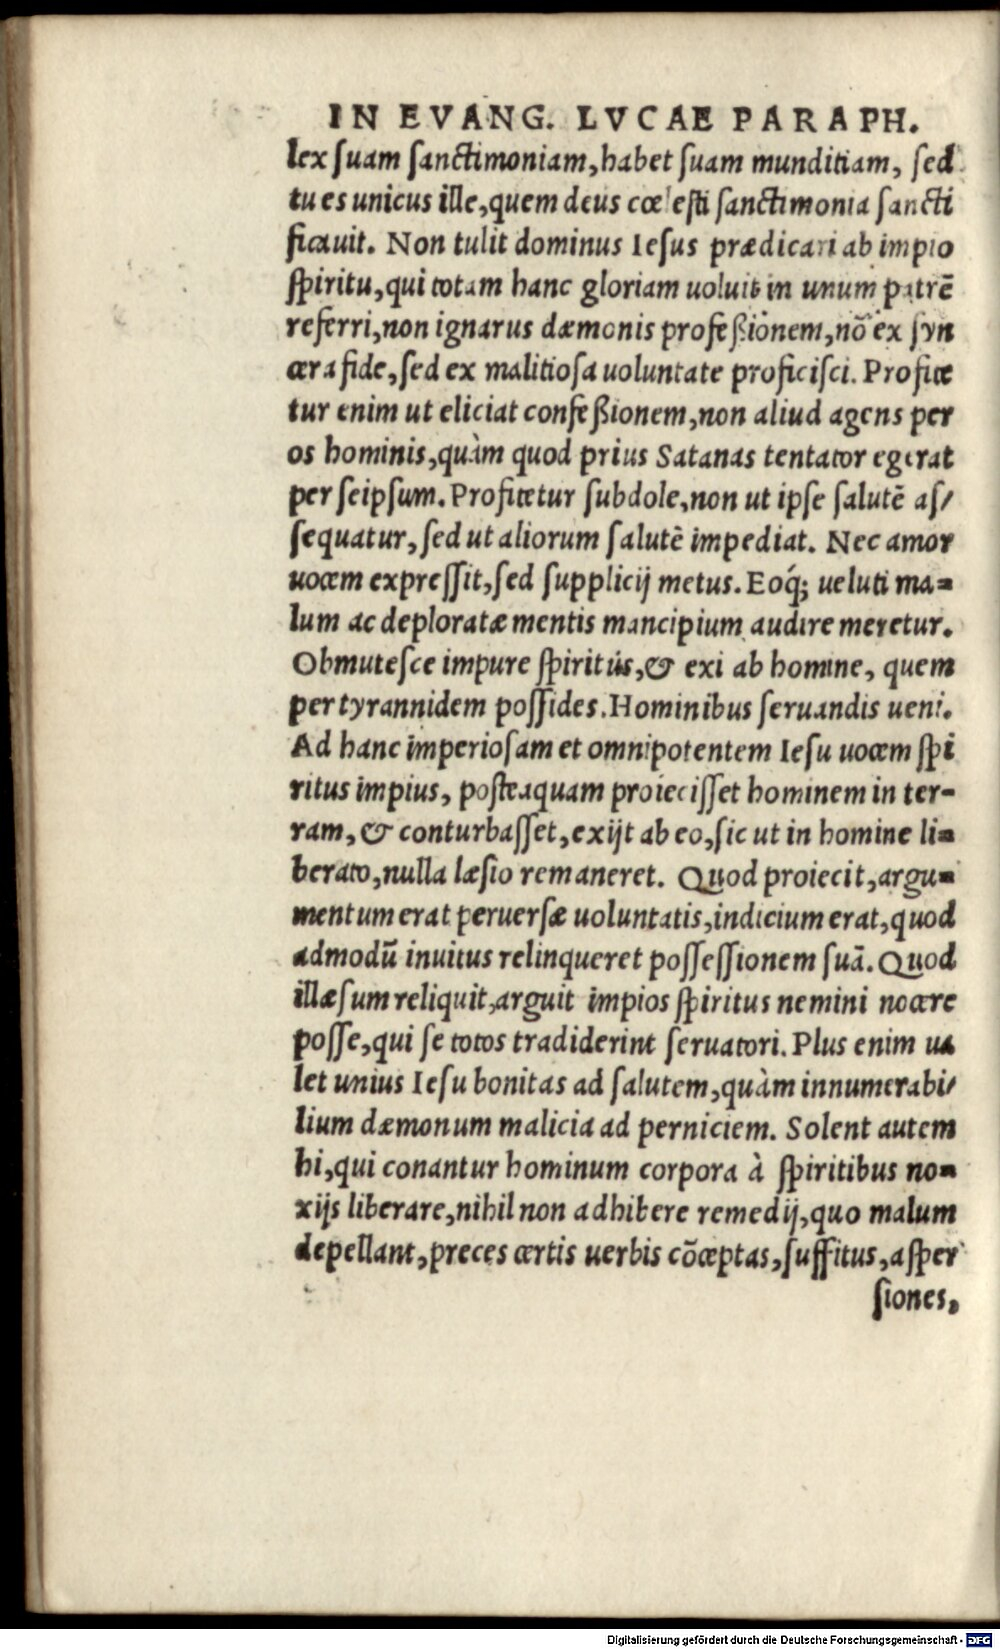 IN EVANG. LVCAE PARAPH.
lex suam sanctimoniam, habet suam munditiam, sed
tu es unicus ille, quem deus cœlesti sanctimonia sancti
ficauit. Non tulit dominus Iesus prædicari ab impio
spiritu, qui totam hanc gloriam uoluit in unum patrē
referri, non ignarus dæmonis profeßionem, nō ex syn
cera fide, sed ex malitiosa uoluntate proficisci. Profite
tur enim ut eliciat confeßionem, non aliud agens per
os hominis, quàm quod prius Satanas tentator egerat
per seipsum. Profitetur subdole, non ut ipse salutē as/
sequatur, sed ut aliorum salutē impediat. Nec amor
uocem expressit, sed supplicij metus. Eoq́; ueluti ma=
lum ac deploratæ mentis mancipium audire meretur.
Obmutesce impure spiritus, & exi ab homine, quem
per tyrannidem possides. Hominibus seruandis ueni.
Ad hanc imperiosam et omnipotentem Iesu uocem spi
ritus impius, posteaquam proiecisset hominem in ter-
ram, & conturbasset, exijt ab eo, sic ut in homine li=
berato, nulla læsio remaneret. Quod proiecit, argu=
mentum erat peruersæ uoluntatis, indicium erat, quod
admodū inuitus relinqueret possessionem suā. Quod
illæsum reliquit, arguit impios spiritus nemini nocere
posse, qui se totos tradiderint seruatori. Plus enim ua
let unius Iesu bonitas ad salutem, quàm innumerabi/
lium dæmonum malicia ad perniciem. Solent autem
hi, qui conantur hominum corpora à spiritibus no=
xijs liberare, nihil non adhibere remedij, quo malum
depellant, preces certis uerbis cōceptas, suffitus, asper
siones,
Digitalisierung gefördert durch die Deutsche Forschungsgemeinschaft - DFG